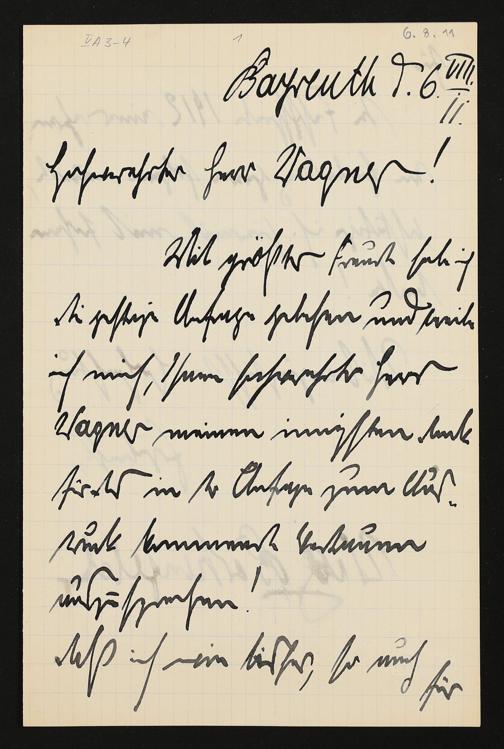 VA3-4 1 6.8.11
Bayreuth d. 6. VIII. 11.
Hochverehrter Herr Wagner!
Mit größter Freude habe ich
die gestrige Anfrage gelesen und beeile
ich mich, Ihnen hochverehrter Herr
Wagner meinen innigsten Dank
für das in der Anfrage zum Aus-
druck kommende Vertrauen
auszusprechen!
Daß ich wie bisher, so auch
für